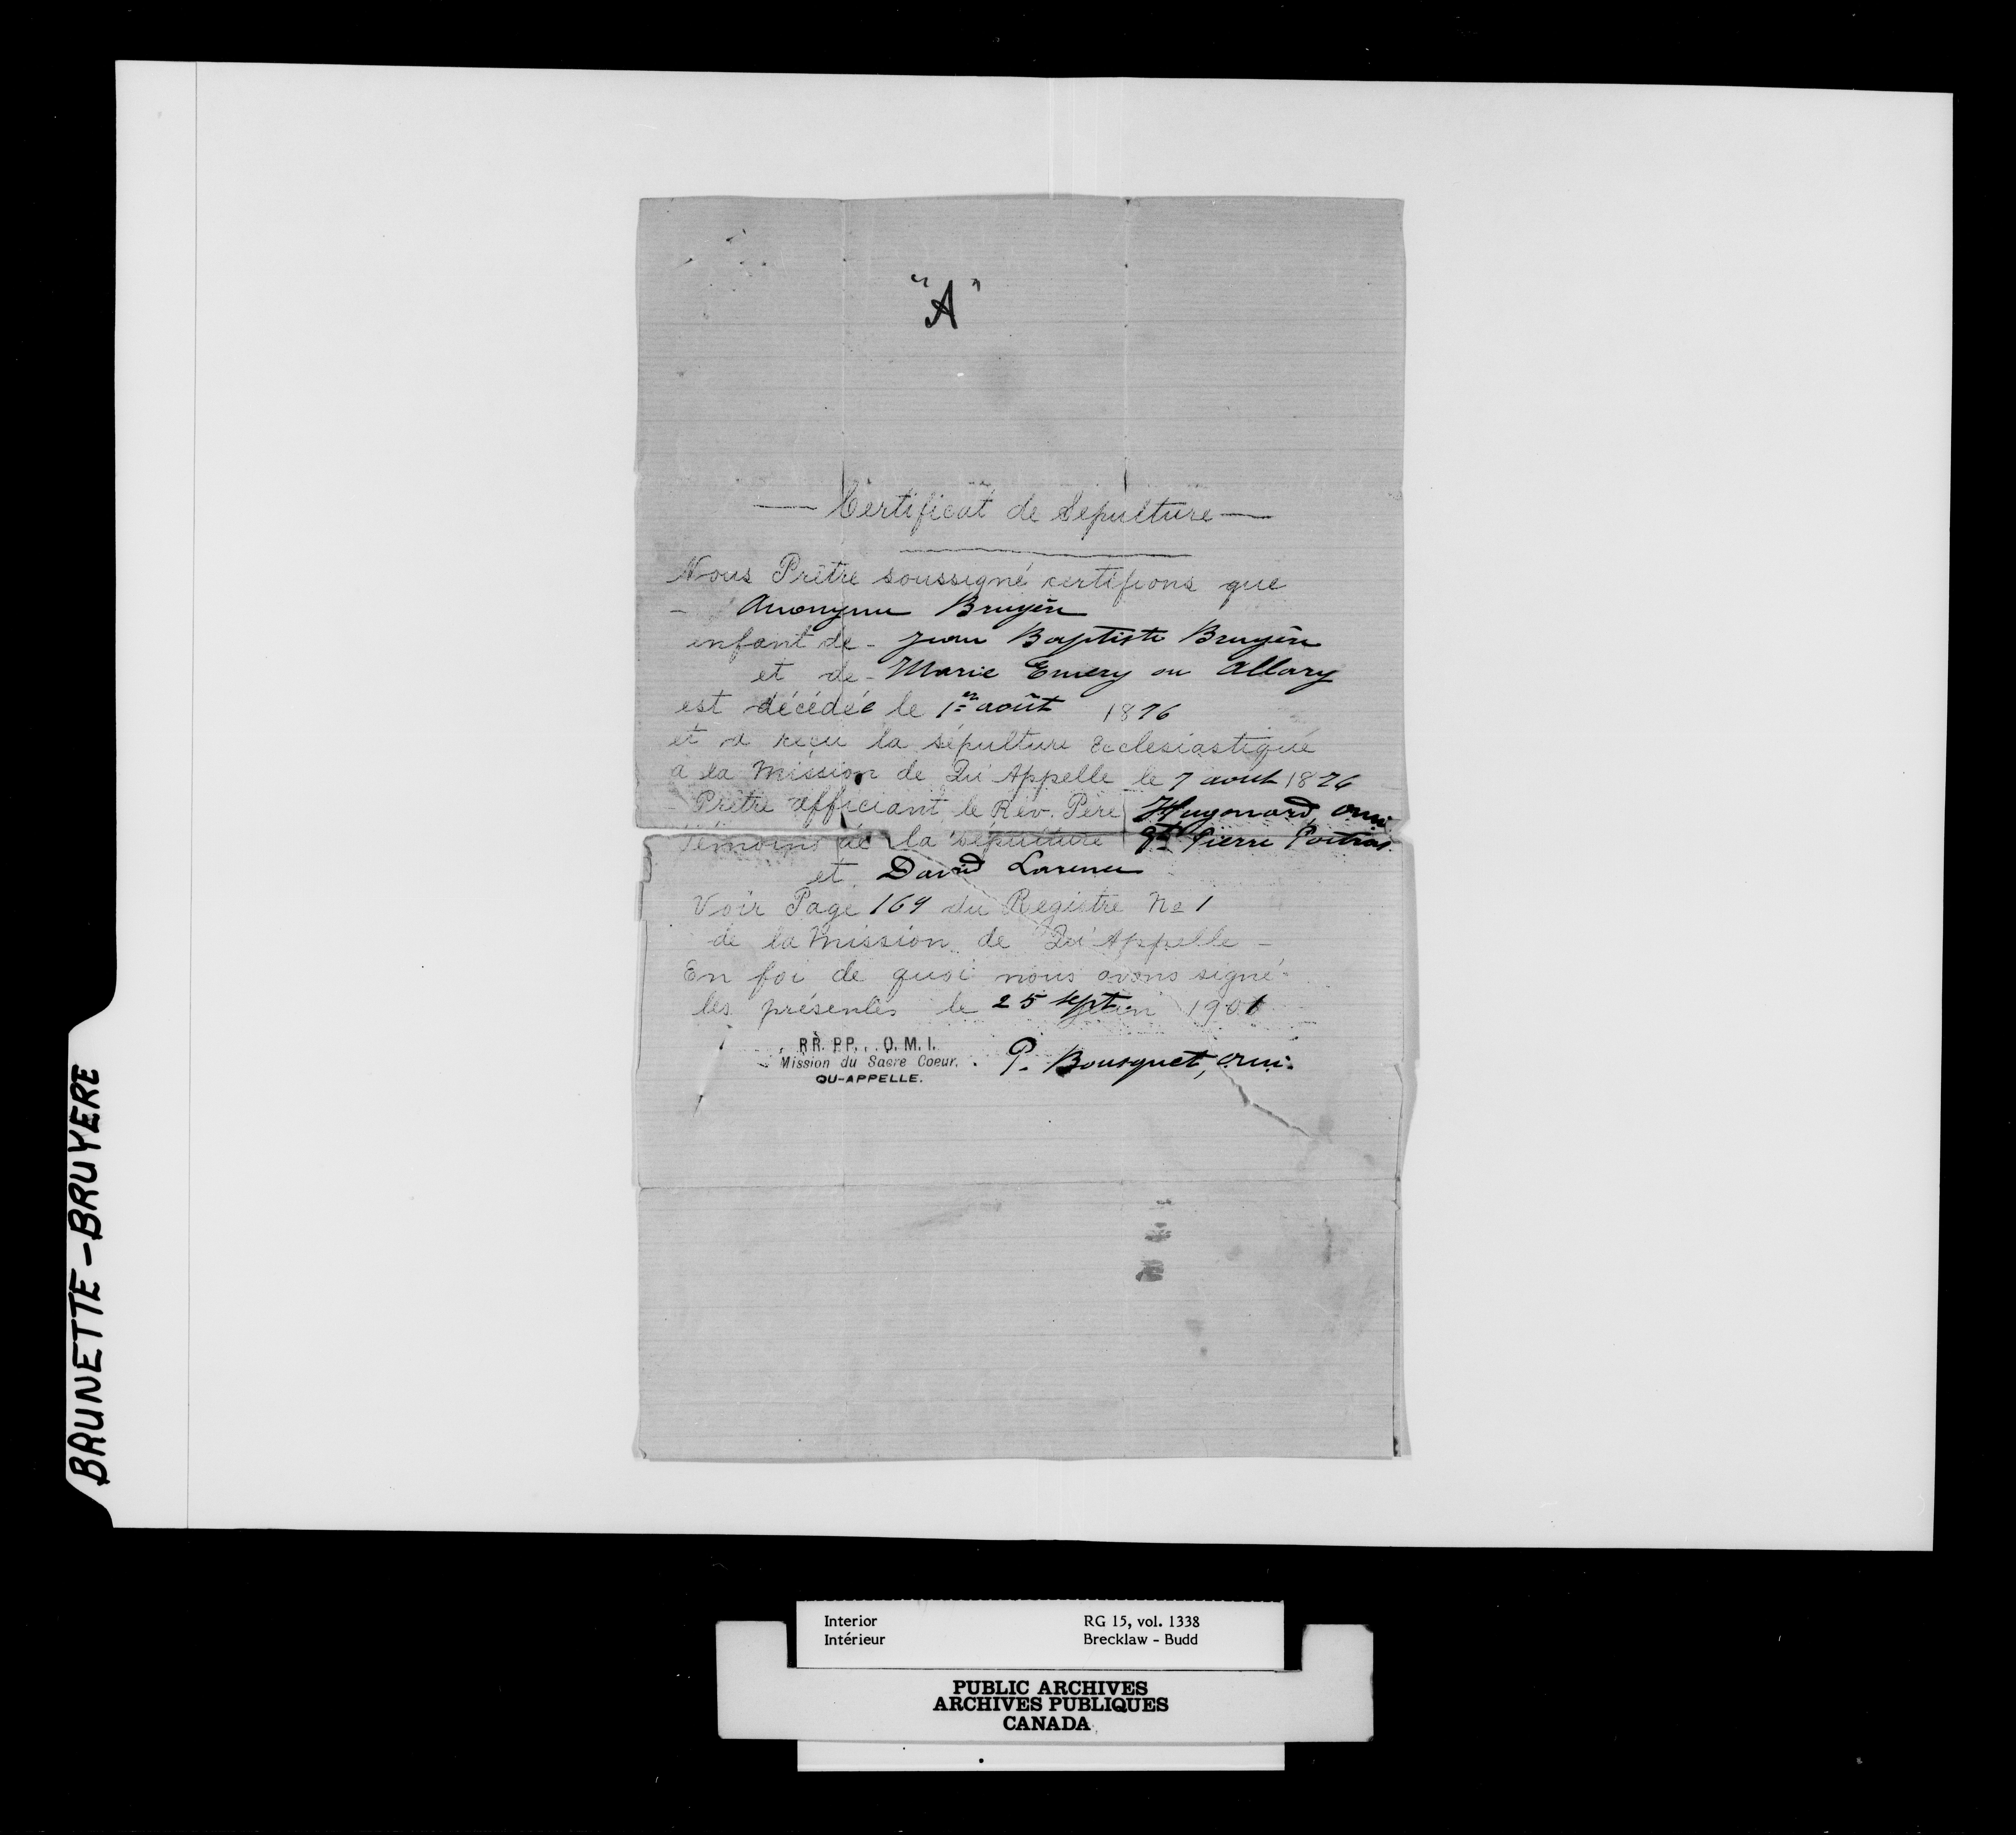 "A"
Certificat de Sépulture
Nous Prêtre soussigné certifions que
Anonyme Bruyère
enfant de Jean Baptiste Bruyère
et de Marie Emery ou Allary
est décédée le 1er août 1876
et a reçu la sépulture Ecclesiastique
à la Mission de Qu'Appelle le 7 août 1876
Prêtre officiant, le Rév. Père Hugonard, omi
Témoins de la sépulture Pierre Poitras
et David
Voir Page 169 du Registre No 1
de la Mission de Qu'Appelle -
En foi de quoi nous avons signé
les présentes le 25 sept 1901
RR. PP. O. M. I.
Mission du Sacre Coeur.
QU-APPELLE.
P. Bousquet, omi.
BRUNETTE-BRUYERE
Interior RG 15, vol. 1338
Intérieur Brecklaw - Budd
PUBLIC ARCHIVES
ARCHIVES PUBLIQUES
CANADA